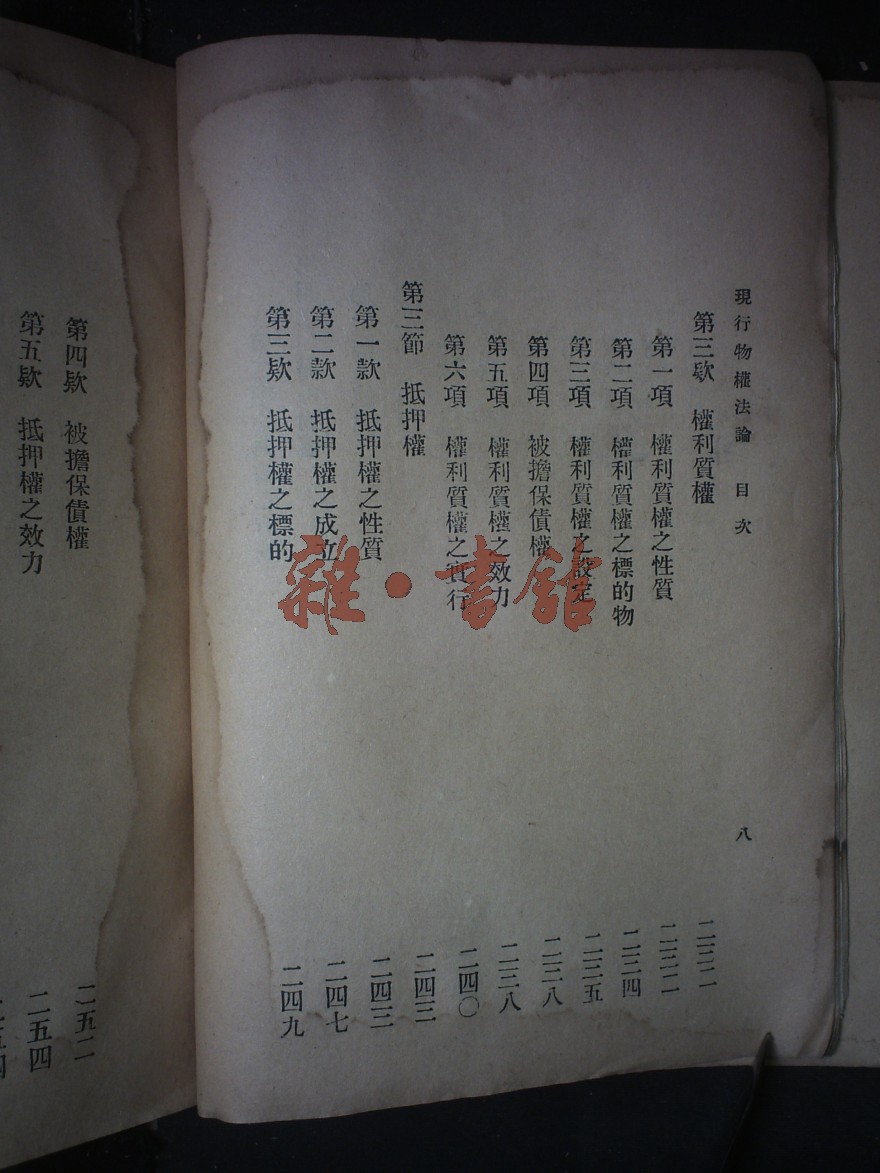 現行物權法論　目次　八
第三款　權利質權　二二二
第一項　權利質權之性質　二二二
第二項　權利質權之標的物　二二四
第三項　權利質權之設定　二二五
第四項　被擔保債權　二二八
第五項　權利質權之效力　二三八
第六項　權利質權之實行　二四〇
第三節　抵押權　二四三
第一款　抵押權之性質　二四三
第二款　抵押權之成立　二四七
第三款　抵押權之標的　二四九
第四款　被擔保債權　二五二
第五款　抵押權之效力　二五四
雜·書館